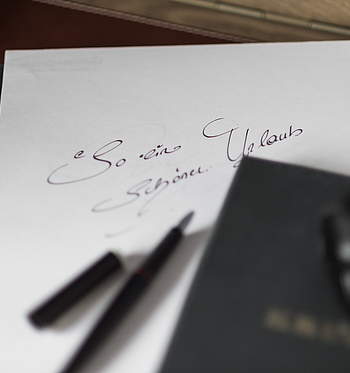 So ein
schöner Urlaub